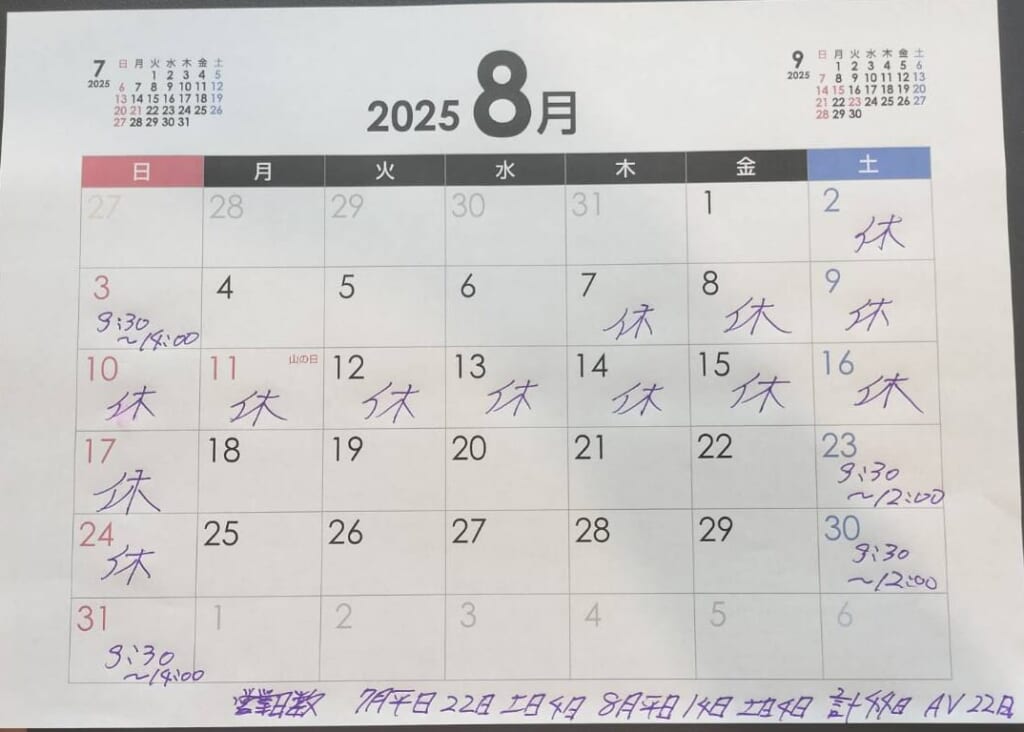 7 2025
日 月 火 水 木 金 土
1 2 3 4 5
6 7 8 9 10 11 12
13 14 15 16 17 18 19
20 21 22 23 24 25 26
27 28 29 30 31
2025 8月
9 2025
日 月 火 水 木 金 土
1 2 3 4 5 6
7 8 9 10 11 12 13
14 15 16 17 18 19 20
21 22 23 24 25 26 27
28 29 30
日 月 火 水 木 金 土
27 28 29 30 31 1 2
休
3 4 5 6 7 8 9
9:30 休 休 休
~14:00
10 11 山の日 12 13 14 15 16
休 休 休 休 休 休 休
17 18 19 20 21 22 23
休 9:30
~12:00
24 25 26 27 28 29 30
休 9:30
~12:00
31 1 2 3 4 5 6
9:30
~14:00
営業日数 7月平日22日 土日4日 8月平日14日 土日4日 計44日 AV22日